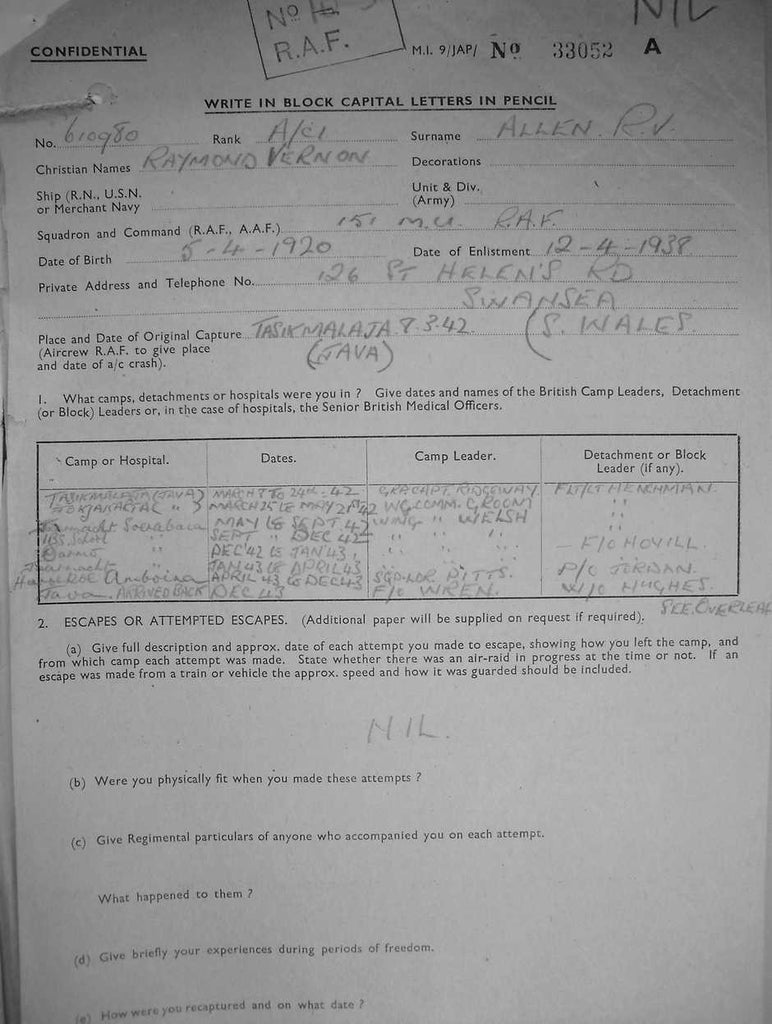 No
R.A.F.
NIL
CONFIDENTIAL
M.I. 9/JAP/ No 33052 A
WRITE IN BLOCK CAPITAL LETTERS IN PENCIL
No. 610980 Rank A/C1 Surname ALLEN. R.V.
Christian Names RAYMOND VERNON Decorations
Ship (R.N., U.S.N. or Merchant Navy Unit & Div. (Army)
Squadron and Command (R.A.F., A.A.F.) 151 M.U. R.A.F.
Date of Birth 5-4-1920 Date of Enlistment 12-4-1938
Private Address and Telephone No. 126 ST HELEN'S RD
SWANSEA
Place and Date of Original Capture TASIKMALAJA 8.3.42 (S. WALES
(Aircrew R.A.F. to give place (JAVA)
and date of a/c crash).
1. What camps, detachments or hospitals were you in ? Give dates and names of the British Camp Leaders, Detachment
(or Block) Leaders or, in the case of hospitals, the Senior British Medical Officers.
Camp or Hospital. Dates. Camp Leader. Detachment or Block
Leader (if any).
TASIKMALAJA (JAVA) MARCH 8 TO 24th. 42 GRP CAPT. RIDGEWAY. FLT/LT HENCHMAN.
MARCH 25 to MAY 42 WG COMM. GROOM
Sourabaia MAY to SEPT. 42 WING " WELSH
School " SEPT " DEC 42 " "
" DEC '42 to JAN 43, " " — F/O HOVILL.
JAN 43 to APRIL 43 " "
Amboina APRIL 43 to DEC 43 SQD-LDR PITTS. P/O JORDAN.
Java. ARRIVED BACK DEC 43 F/O WREN. W/O HUGHES.
SEE OVERLEAF
2. ESCAPES OR ATTEMPTED ESCAPES. (Additional paper will be supplied on request if required).
(a) Give full description and approx. date of each attempt you made to escape, showing how you left the camp, and
from which camp each attempt was made. State whether there was an air-raid in progress at the time or not. If an
escape was made from a train or vehicle the approx. speed and how it was guarded should be included.
NIL.
(b) Were you physically fit when you made these attempts ?
(c) Give Regimental particulars of anyone who accompanied you on each attempt.
What happened to them ?
(d) Give briefly your experiences during periods of freedom.
(e) How were you recaptured and on what date ?